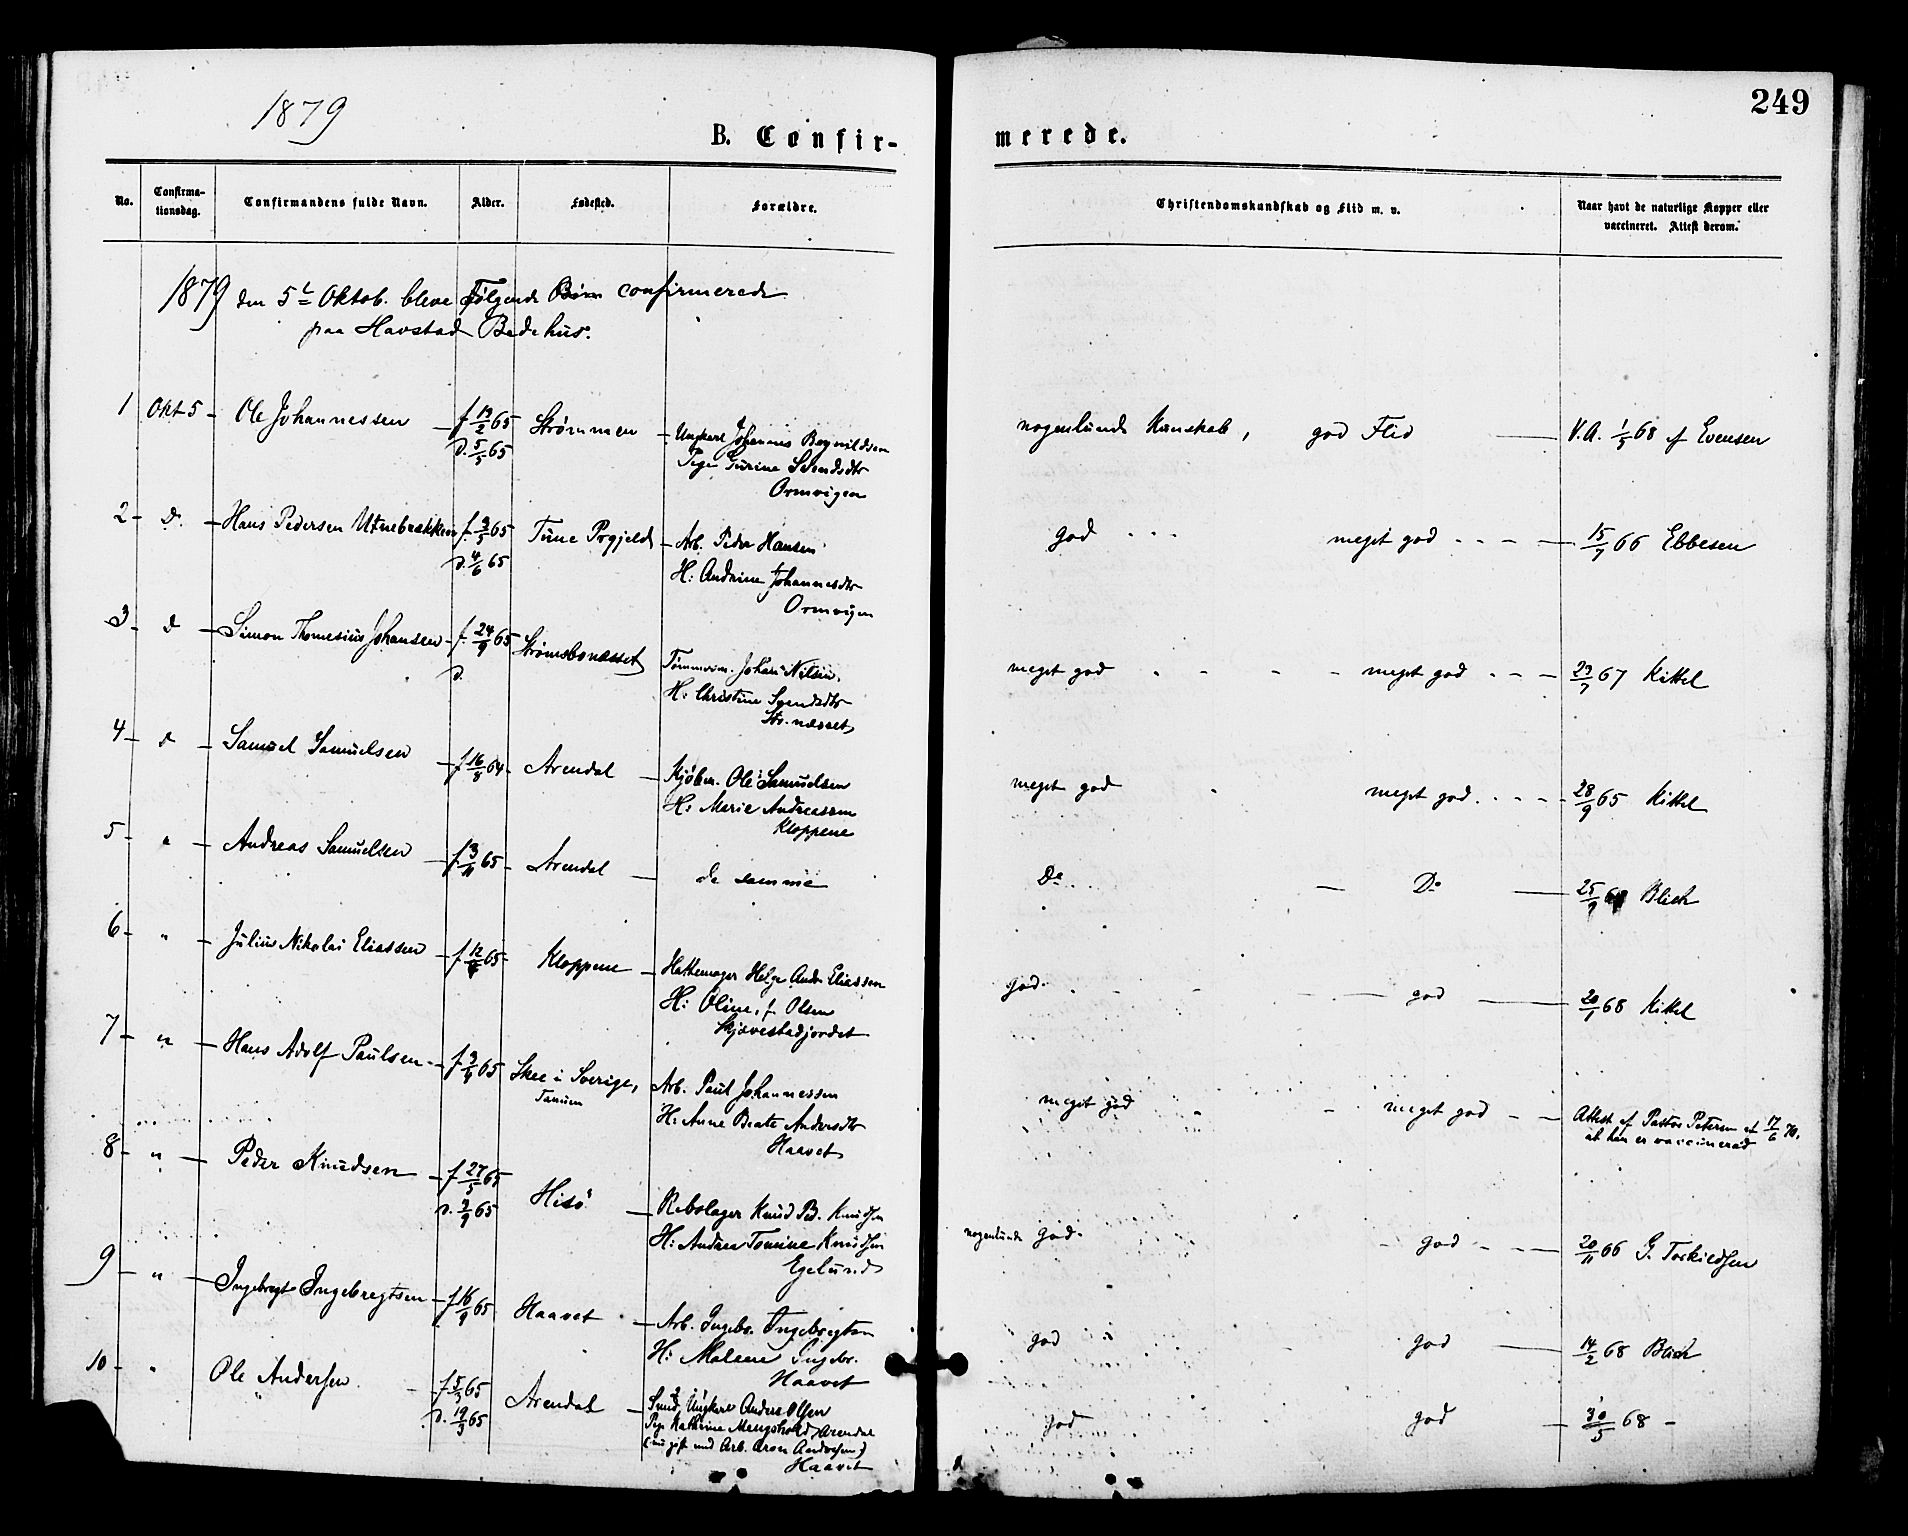 1879
249
B. Confir-
merede.
No.
Confirma-
tionsdag.
Confirmandens fulde Navn.
Alder.
Fødested.
Forældre.
Christendomskundskab og Flid m. v.
Naar havt de naturlige Kopper eller
vaccineret. Attest derom.
1879 den 5te Oktob. bleve Følgende Børn confirmerede
paa Havstad Bedehus.
1 Okt 5 - Ole Johannessen f 19/2 65 Strømmen - Ungkarl Johannes
D. 5/5 65 Pige Gurine
Ormvigen
nogenlunde Kunskab, god Flid V.A. 1/5 68 af Evensen
2 - D. - Hans Pedersen f. 3/5 65 Tune Prgjeld - Arb. Peder Hansen
D. 4/6 65 H: Andrine Johannesdtr
Ormvigen
god meget god 15/7 66 Ebbesen
3 - D - Simon Thomesius Johansen f. 24/9 65 Strømsbonæsset Tømmerm. Johan Nilsen
D. H: Christine Svendsdtr
Str. næsset
meget god meget god 23/7 67 Kittel
4 - D - Samuel Samuelsen - f 16/8 64 - Arendal - Kjøbm. Ole Samuelsen
H: Marie Andreassen
Kloppene
meget god meget god 28/9 65 Kittel
5 " - Andreas Samuelsen - f. 3/11 65 - Arendal - de samme
Do Do 25/9 Blich
6 - " - Julius Nikolai Eliassen - f. 12/ 65 - Kloppene - Hattemager Helge Andr. Eliassen
H: Oline, f. Olsen
Skjævestadjordet
god god 20/1 68 Kittel
7 - " - Hans Adolf Paulsen - f 3/4 65 Skee i Sverige, Arb. Paul Johannessen
Tanum H: Anne Beate Andersdtr
Haavet
meget god meget god Attest af Pastor Petersen af 17/6 70,
at han er vaccinered
8 - " - Peder Knudsen - f 27/5 65 Hisø - Rebslager Knud B. Knudsen
D. 3/9 65 H: Andrea Tomine Knudsen
Egelund
nogenlunde god god 20/11 66 G. Torkildsen
9 - " - Ingebregt Ingebregtsen - f 16/9 65 Haavet - Arb. Ingebr. Ingebregtsen
H: Malene Ingebr.
Haavet
god god 14/2 68 Blich
10 - " Ole Andersen f 5/3 65 Arendal - Smed, Ungkarl Anders Olsen
D. 19/3 65 Pige Kathrine Arendal
(nu gift med Arb. Aron Andersen)
Haavet
god god 30/5 68 -